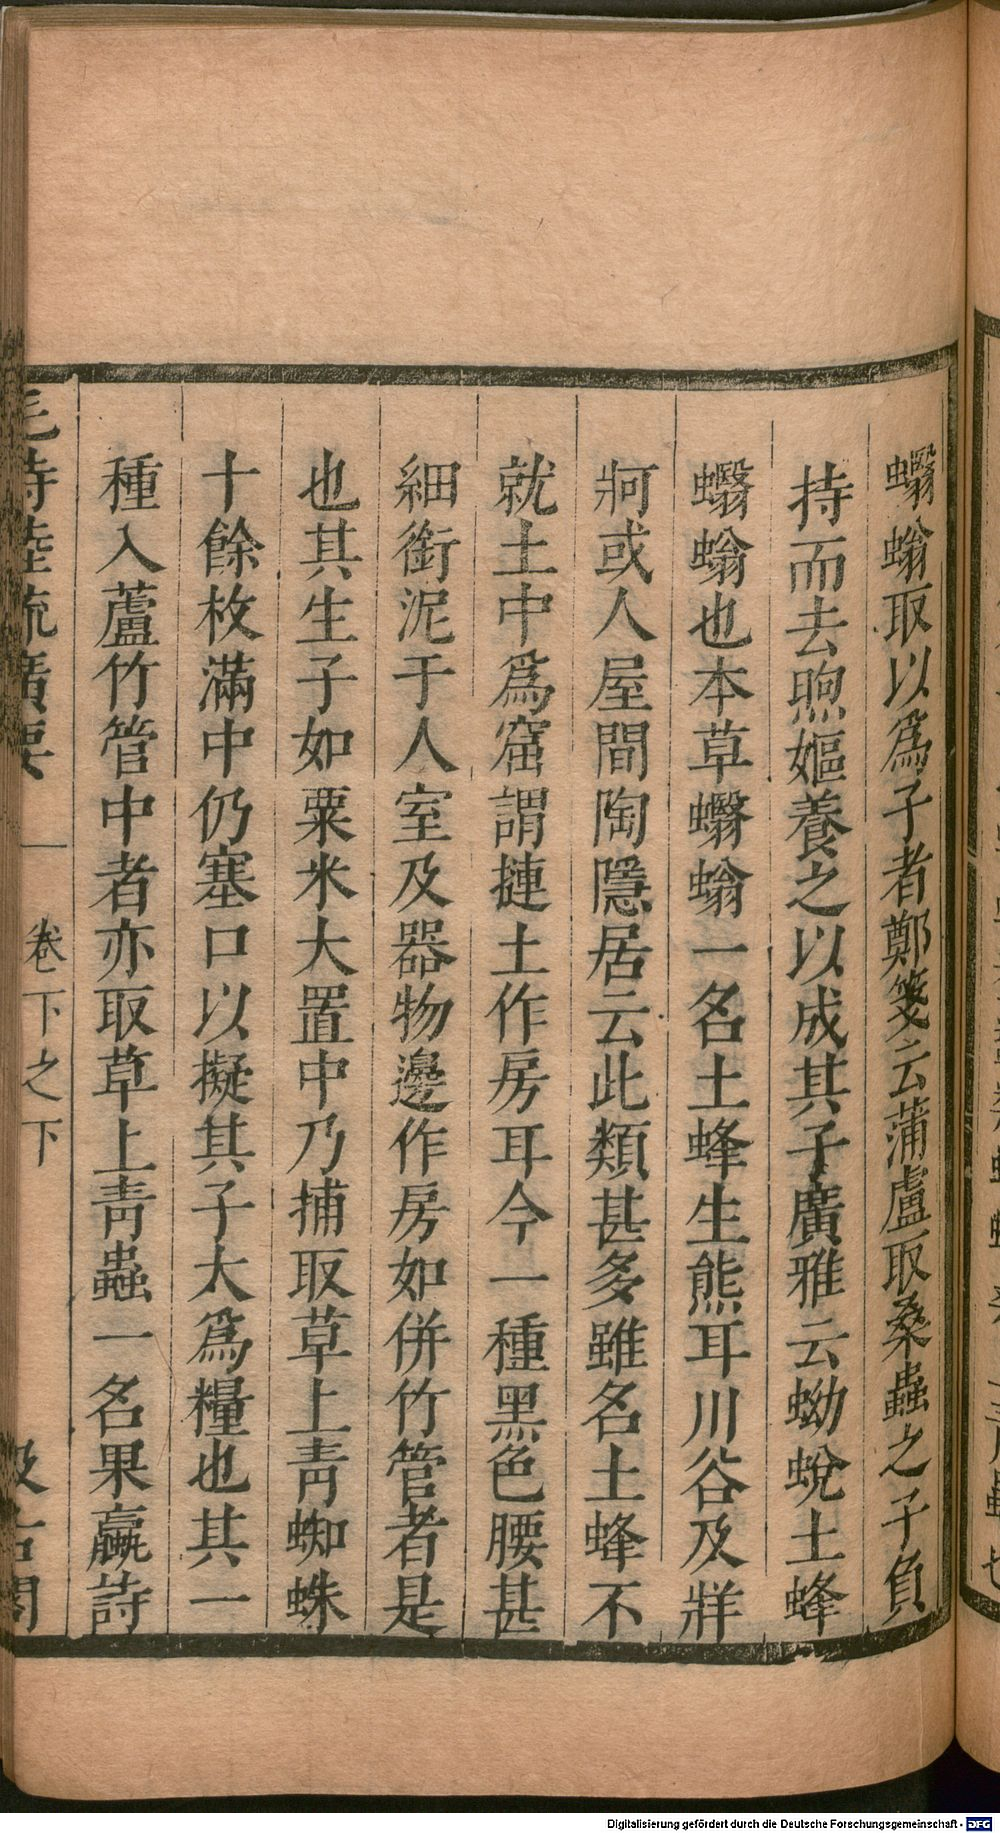 蠮螉取以爲子者鄭箋云蒲盧取桑蟲之子負
持而去煦嫗養之以成其子廣雅云蚴蛻土蜂
蠮螉也本草蠮螉一名土蜂生熊耳川谷及牂
牁或人屋間陶隱居云此類甚多雖名土蜂不
就土中爲窟謂摙土作房耳今一種黑色腰甚
細銜泥于人室及器物邊作房如併竹管者是
也其生子如粟米大置中乃捕取草上靑蜘蛛
十餘枚滿中仍塞口以擬其子大爲糧也其一
種入蘆竹管中者亦取草上靑蟲一名果蠃詩
毛詩陸疏廣要 卷下之下 汲古閣
Digitalisierung gefördert durch die Deutsche Forschungsgemeinschaft - DFG